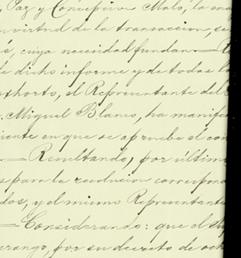 Paz y Concepcion Malo, la
virtud de la transaccion, se
, cuya necesidad fundan
dicho informe y de todas l
exhorto, el Representante del
Miguel Blanco, ha manifes
en que se apruebe el con
—Resultando, por último
para la resolucion correspon
dos, y el mismo Representante
—Considerando: que el
por su decreto de och